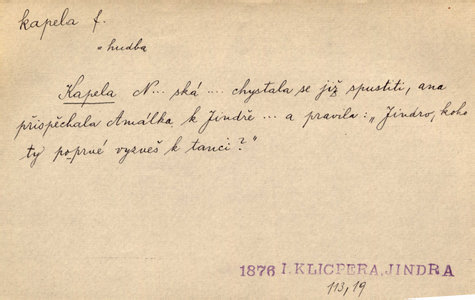 kapela f.
„ hudba
Kapela N... ská ... chystala se již spustiti, ana
přispěchala Amálka k Jindře ... a pravila: „Jindro, koho
ty poprvé vyzveš k tanci?"
1876 I. KLICPERA, JINDRA
113, 19